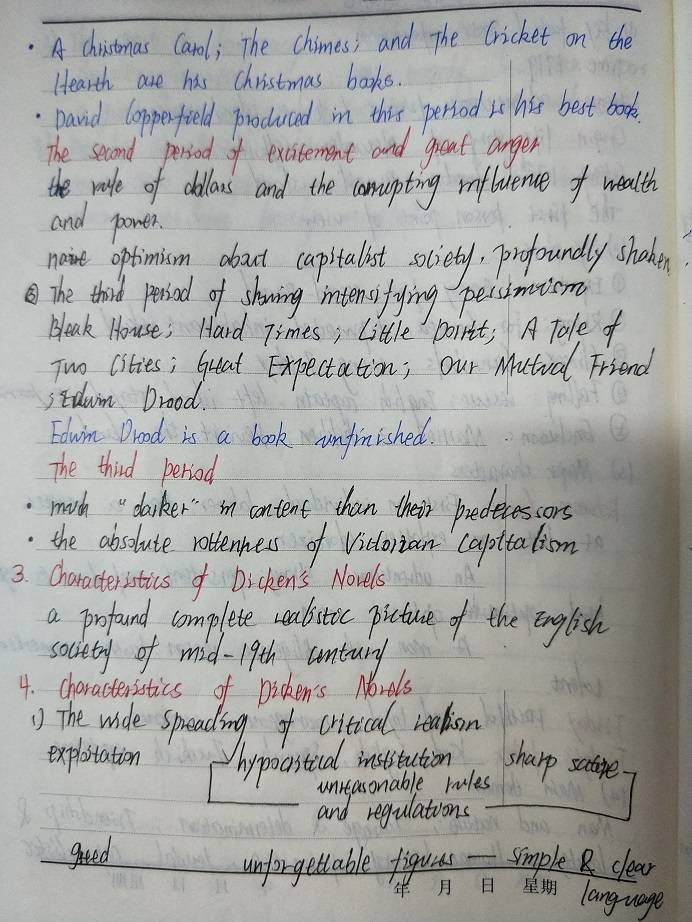 · A Christmas Carol; The Chimes; and The Cricket on the
Hearth are his Christmas books.
· David Copperfield produced in this period is his best book.
The second period of excitement and great anger
the rule of dollars and the corrupting influence of wealth
and power.
naive optimism about capitalist society, profoundly shaken
③ The third period of showing intensifying pessimism
Bleak House; Hard Times; Little Dorrit; A Tale of
Two Cities; Great Expectation; Our Mutual Friend
; Edwin Drood.
Edwin Drood is a book unfinished.
The third period
· much "darker" in content than their predecessors
· the absolute rottenness of Victorian Capitalism
3. Characteristics of Dicken's Novels
a profound complete realistic picture of the English
society of mid-19th century
4. Characteristics of Dicken's Novels
1) The wide spreading of critical realism
exploitation hypocritical institution sharp satire
unreasonable rules
and regulations
greed unforgettable figures — simple & clear
language
年 月 日 星期